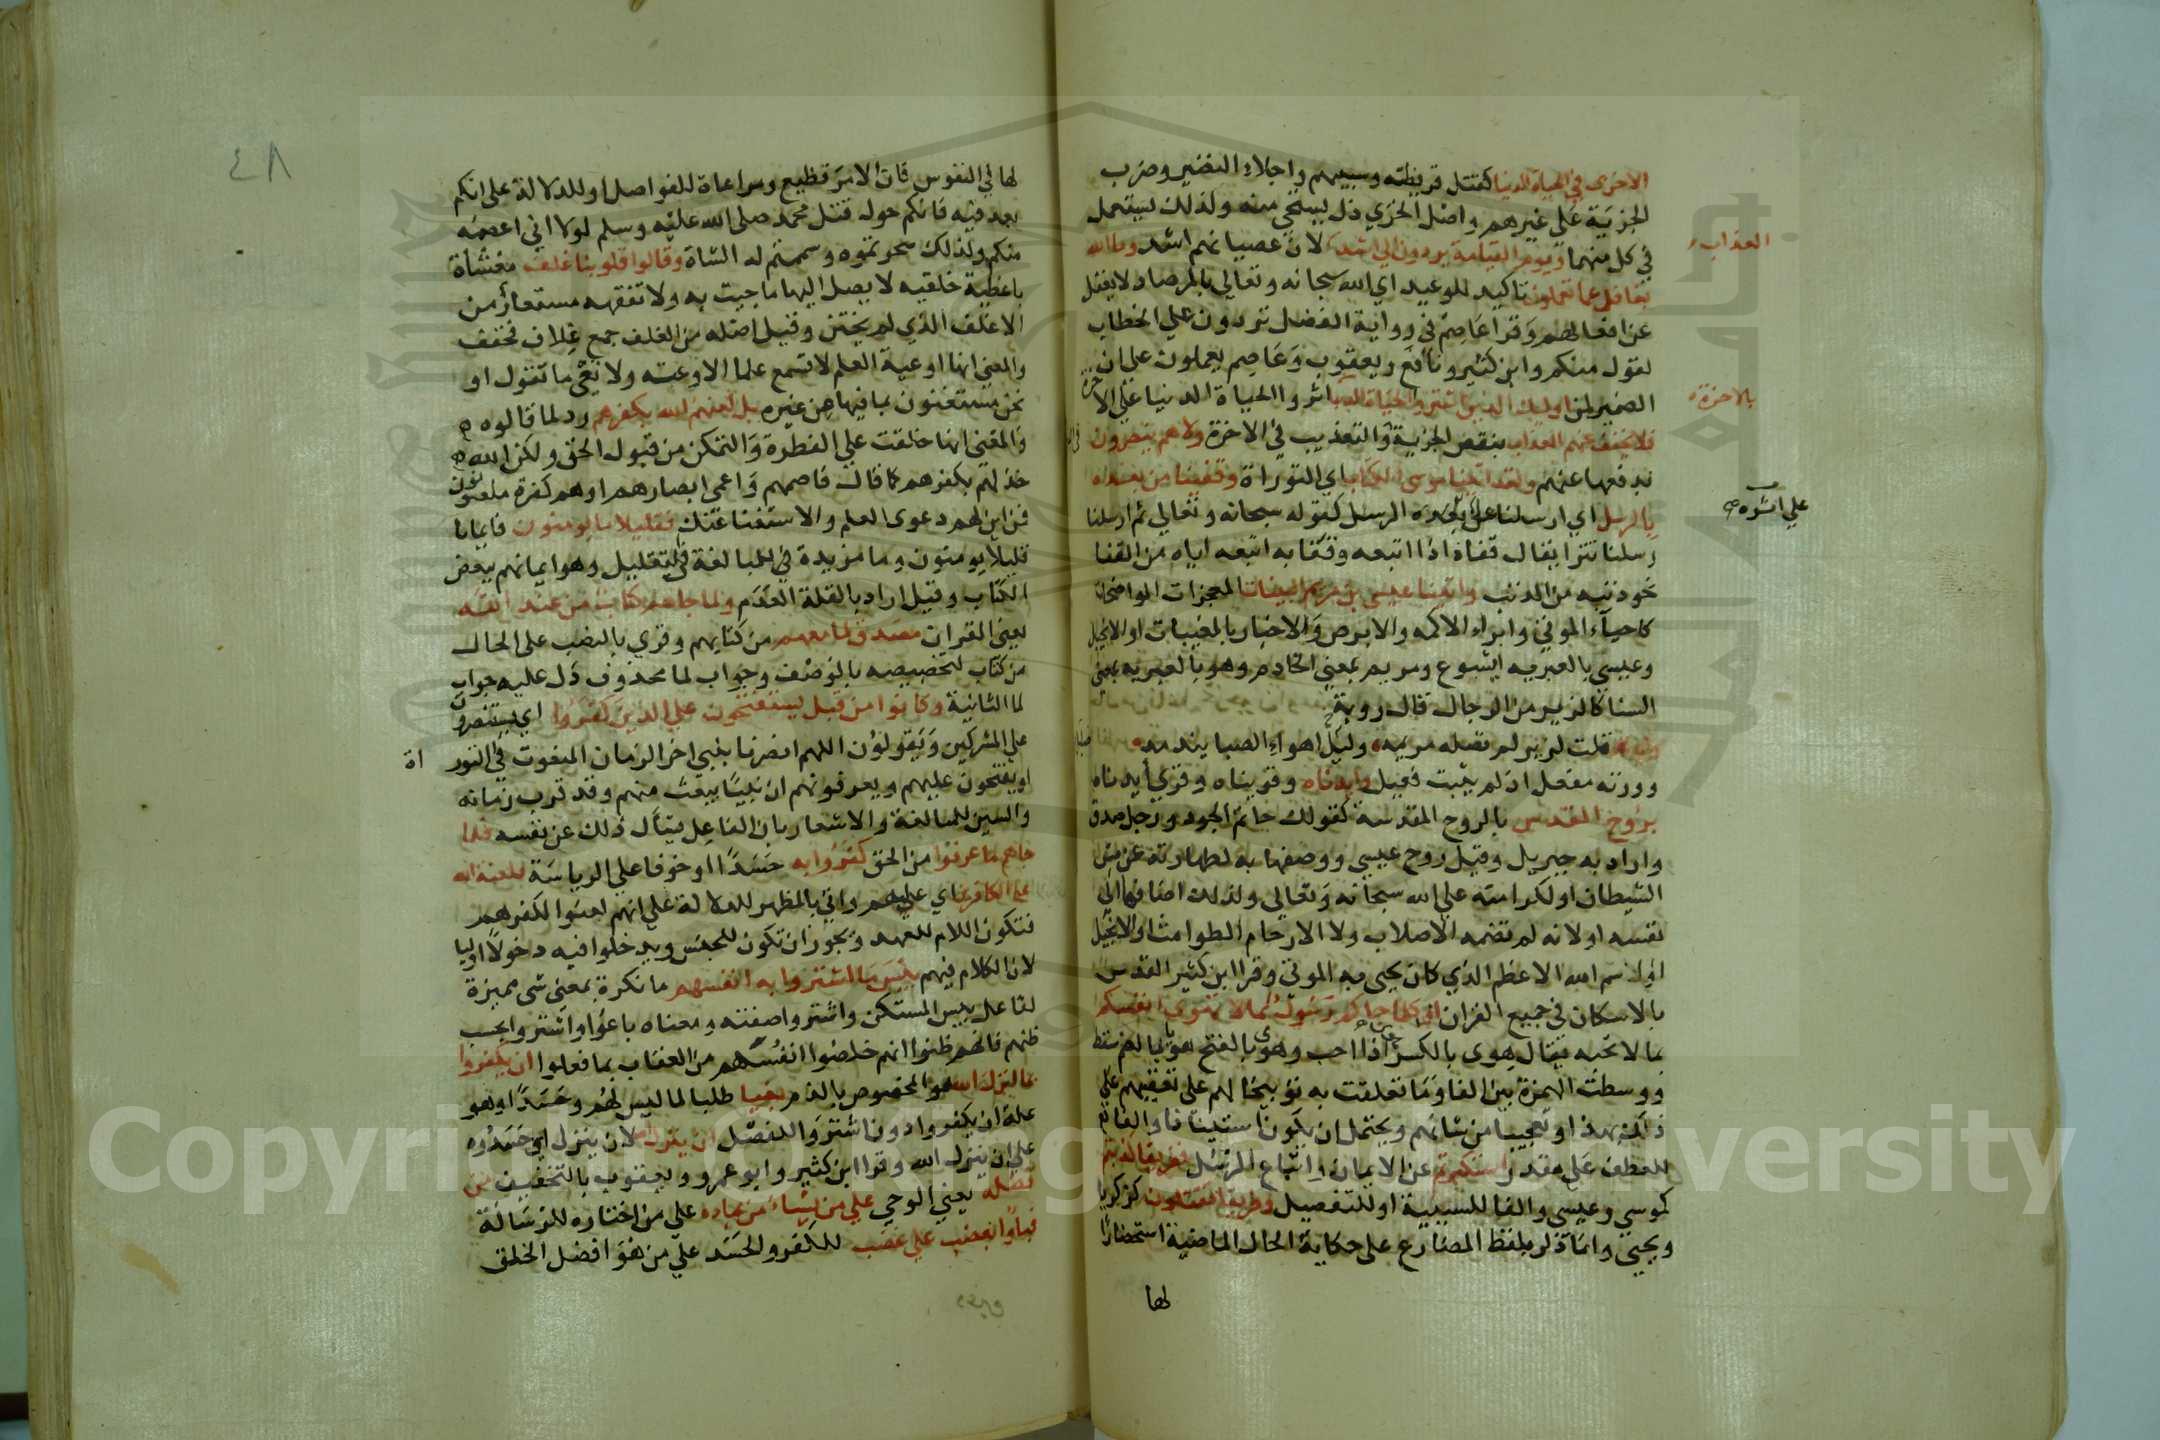 الاخزى في الحياة الدنيا كقتل قريظة وسبيهم واجلاء النضير وضرب
الجزية على غيرهم واصل الخزي ذل يستحى منه ولذلك يستعمل
في كل منهما ويوم القيامة يردون الى اشد لان عصيانهم اشد وما الله
العذاب
بغافل عما تعملون تاكيد للوعيد اي الله سبحانه وتعالى بالمرصاد لا يغفل
عن افعالهم وقرا عاصم في رواية المفضل تردون على الخطاب
لقوله منكم وابن كثير ونافع ويعقوب وعاصم يعملون على ان
الضمير لمن اوليك الذين اشتروا الحياة الدنيا اثروا الحياة الدنيا على الاخرة
بالاخرة
فلا يخفف عنهم العذاب بنقض الجزية والتعذيب في الاخرة ولا هم ينصرون
بدفعها عنهم ولقد اتينا موسى الكتاب اي التوراة وقفينا من بعده
بالرسل اي ارسلنا على اثره الرسل كقوله سبحانه وتعالى ثم ارسلنا
على اثره
رسلنا تترا يقال قفاه اذا اتبعه وقفا به اتبعه اياه من القفا
نحو ذنبه من الذنب واتينا عيسى بن مريم البينات المعجزات الواضحات
كاحياء الموتى وابراء الاكمه والابرص والاخبار بالمغيبات او الانجيل
وعيسى بالعبريه ايشوع ومريم بمعنى الخادم وهو بالعبريه بمعنى
النسا كالزير من الرجال قال روبة
قلت لزير لم تصله مريمه وليل اهواء الصبا يندمه
ووزنه مفعل اذ لم يثبت فعيل وايدناه وقويناه وقري أيدناه
بروح القدس بالروح المقدسة كقولك حاتم الجود ورجل صدق
واراد به جبريل وقيل روح عيسى ووصفها به لطهارته عن مس
الشيطان او لكرامته على الله سبحانه وتعالى ولذلك اضافها الى
نفسه او لانه لم تضمه الاصلاب ولا الارحام الطوامث او الانجيل
او اسم الله الاعظم الذي كان يحيى به الموتى وقرا ابن كثير القدس
بالاسكان في جميع القران افكلما جاكم رسول بما لا تهوى انفسكم
بما لا تحبه يقال هوى بالكسر اذا احب وهوى بالفتح هويا بالضم سقط
ووسطت الهمزة بين الفا وما تعلقت به توبيخا لهم على تعقيبهم على
ذلك بهذا او تعجيبا من شانهم ويحتمل ان يكون استينافا والفا
للعطف على مقدر استكبرتم عن الايمان واتباع الرسل ففريقا كذبتم
كموسى وعيسى والفا للسببية او للتفصيل وفريقا تقتلون كزكريا
ويحيى وانما ذكر بلفظ المضارع على حكاية الحال الماضية استحضارا
لها
٤٨
لها في النفوس فان الامر فظيع ومراعاة للفواصل او للدلالة على انكم
بعد فيه فانكم حول قتل محمد صلى الله عليه وسلم لولا اني اعصمه
منكم ولذلك سحرتموه وسممتم له الشاة وقالوا قلوبنا غلف مغشاة
باغطية خلقيه لا يصل اليها ما جيت به ولا تفقهه مستعار من
الاغلف الذي لم يختن وقيل اصله من الغلف جمع غلاف فخفف
والمعنى انها اوعية العلم لا تسمع علما الا وعته ولا تعي ما تقول او
نحن مستغنون بما فيها عن غيره بل لعنهم الله بكفرهم رد لما قالوه
والمعنى انها خلقت على الفطرة والتمكن من قبول الحق ولكن الله
خذلهم بكفرهم كما قال فاصمهم واعمى ابصارهم او هم كفرة ملعونون
فمن اين لهم دعوى العلم والاستغنا عنك فقليلا ما يومنون فايمانا
قليلا يومنون وما مزيدة في للمبالغة في التقليل وهو ايمانهم ببعض
الكتاب وقيل اراد بالقلة العدم ولما جاهم كتاب من عند الله
يعني القران مصدق لما معهم من كتابهم وقري بالنصب على الحال
من كتاب لتخصيصه بالوصف وجواب لما محذوف دل عليه جواب
لما الثانية وكانوا من قبل يستفتحون على الذين كفروا اي يستنصرون
على المشركين ويقولون اللهم انصرنا بنبي اخر الزمان المبعوت في التور
اة
او يفتحون عليهم ويعرفونهم ان نبيا يبعث منهم وقد قرب زمانه
والسين للمبالغة والاشعار بان الفاعل يسأل ذلك عن نفسه فلما
جاهم ما عرفوا من الحق كفروا به حسدا او خوفا على الرياسة فلعنة الله
على الكافرين اي عليهم واتى بالمظهر للدلالة على انهم لعنوا لكفرهم
فتكون اللام للعهد ويجوز ان تكون للجنس ويدخلوا فيه دخولا اوليا
لان الكلام فيهم بئس ما اشتروا به انفسهم ما نكرة بمعنى شى مميزة
لفاعل بيس المستكن واشتروا صفته ومعناه باعوا او اشتروا بحسب
ظنهم فانهم ظنوا انهم خلصوا انفسهم من العقاب بما فعلوا ان يكفروا
بما انزل الله هو المخصوص بالذم بغيا طلبا لما ليس لهم وحسدا وهو
علة ان يكفروا دون اشتروا للفصل ان ينزل الله لان ينزل اي حسدوه
على ان ينزل الله وقرا ابن كثير وابو عمرو ويعقوب بالتخفيف من
فضله يعني الوحي على من يشاء من عباده على من اختاره للرسالة
فباوا بغضب على غضب للكفر والحسد على من هو افضل الخلق
Copyright © King Saud University